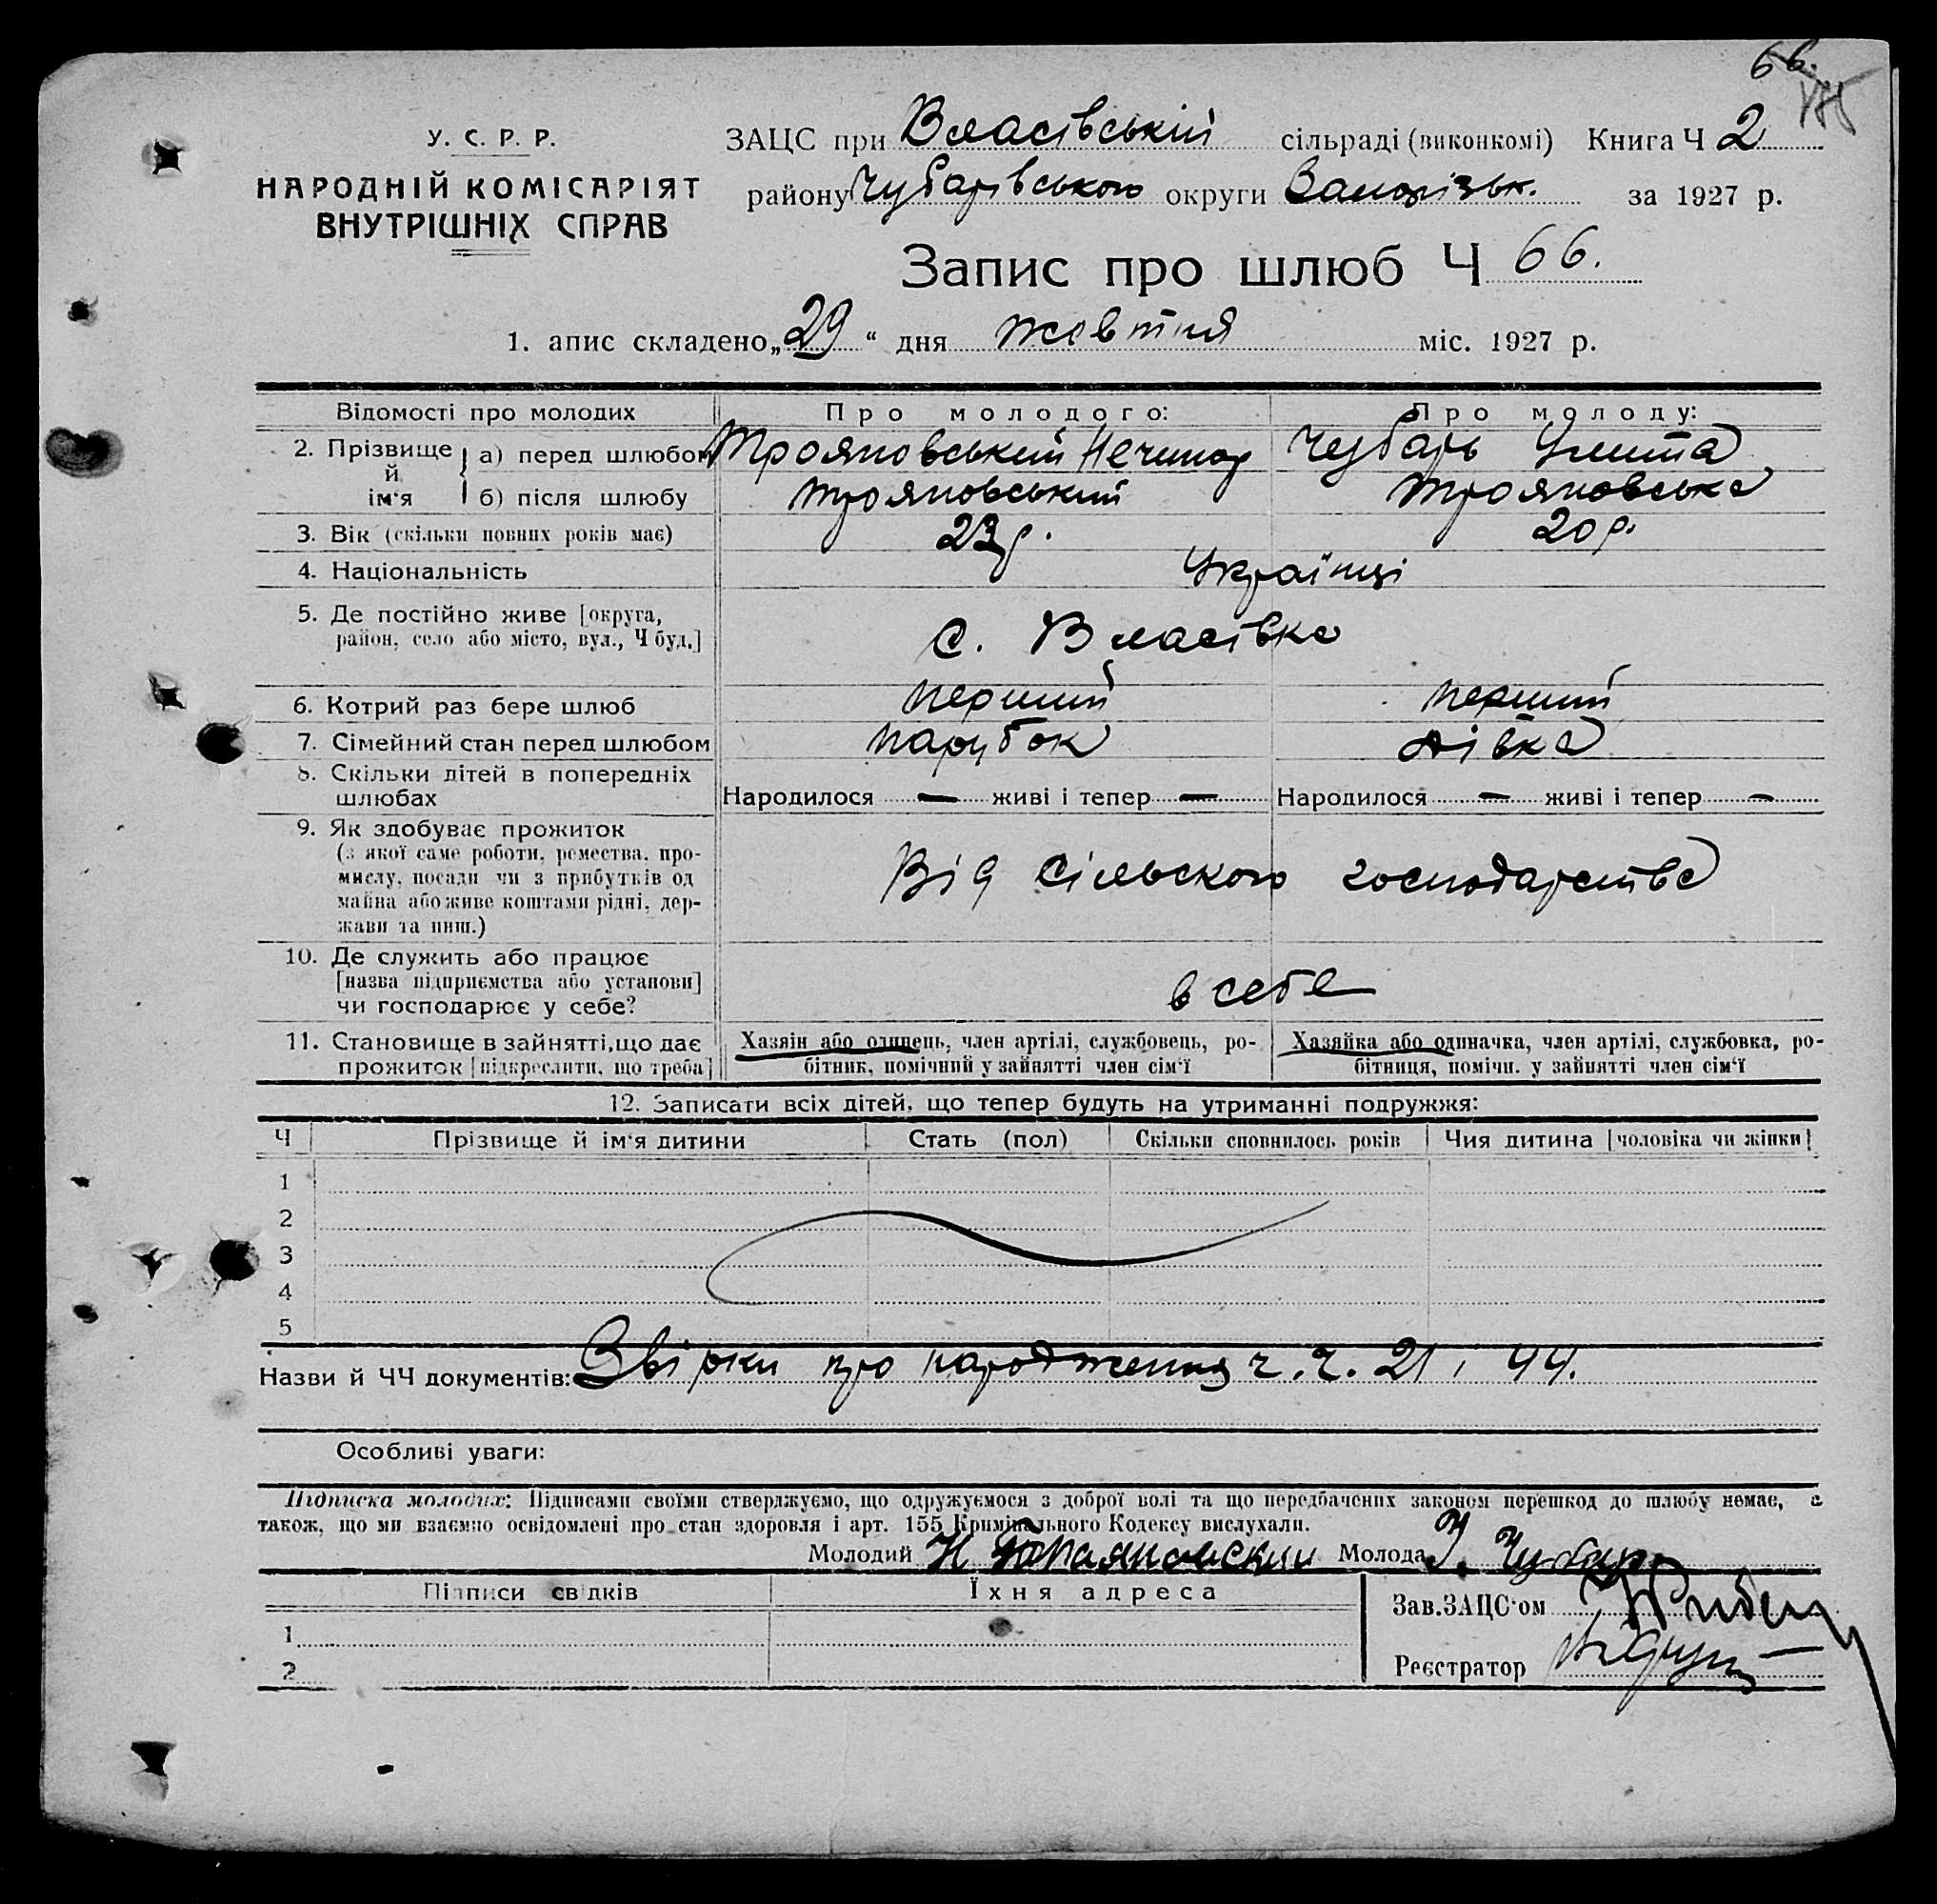 66.
У. С. Р. Р.
НАРОДНІЙ КОМІСАРІЯТ
ВНУТРІШНІХ СПРАВ
ЗАЦС при Власівській сільраді (виконкомі) Книга Ч 2
району Чубарівського округи Запорізьк. за 1927 р.
Запис про шлюб Ч 66.
1. апис складено „29“ дня жовтня міс. 1927 р.
Відомості про молодих Про молодого: Про молоду:
2. Прізвище й ім'я а) перед шлюбом Трояновський Нечипор Чубарь Улита
б) після шлюбу Трояновський Трояновська
3. Вік (скільки повних років має) 23 р. 20 р.
4. Національність Українці
5. Де постійно живе [округа,
район, село або місто, вул., Ч буд.] С. Власівка
6. Котрий раз бере шлюб перший перший
7. Сімейний стан перед шлюбом парубок дівка
8. Скільки дітей в попередніх
шлюбах Народилося — живі і тепер — Народилося — живі і тепер —
9. Як здобуває прожиток
(з якої саме роботи, ремества, про-
мислу, посади чи з прибутків од
майна або живе коштами рідні, дер-
жави та инш.) Від сільского господарства
10. Де служить або працює
[назва підприємства або установи]
чи господарює у себе? в себе
11. Становище в зайнятті, що дає
прожиток [підкреслити, що треба]
Хазяін або одинець, член артілі, службовець, ро-
бітник, помічний у зайнятті член сім'ї
Хазяйка або одиначка, член артілі, службовка, ро-
бітниця, помічн. у зайнятті член сім'ї
12. Записати всіх дітей, що тепер будуть на утриманні подружжя:
Ч Прізвище й ім'я дитини Стать (пол) Скільки сповнилось років Чия дитина [чоловіка чи жінки]
1
2
3
4
5
Назви й ЧЧ документів: Звірки про народження ч. ч. 21 і 44.
Особливі уваги:
Підписка молодих: Підписами своїми стверджуємо, що одружуємося з доброї волі та що передбачених законом перешкод до шлюбу немає, а
також, що ми взаємно освідомлені про стан здоровля і арт. 155 Кримінального Кодексу вислухали.
Молодий Н Трояновский Молода У. Чубарь
Підписи свідків Їхня адреса
Зав. ЗАЦС'ом
1
Реєстратор
2